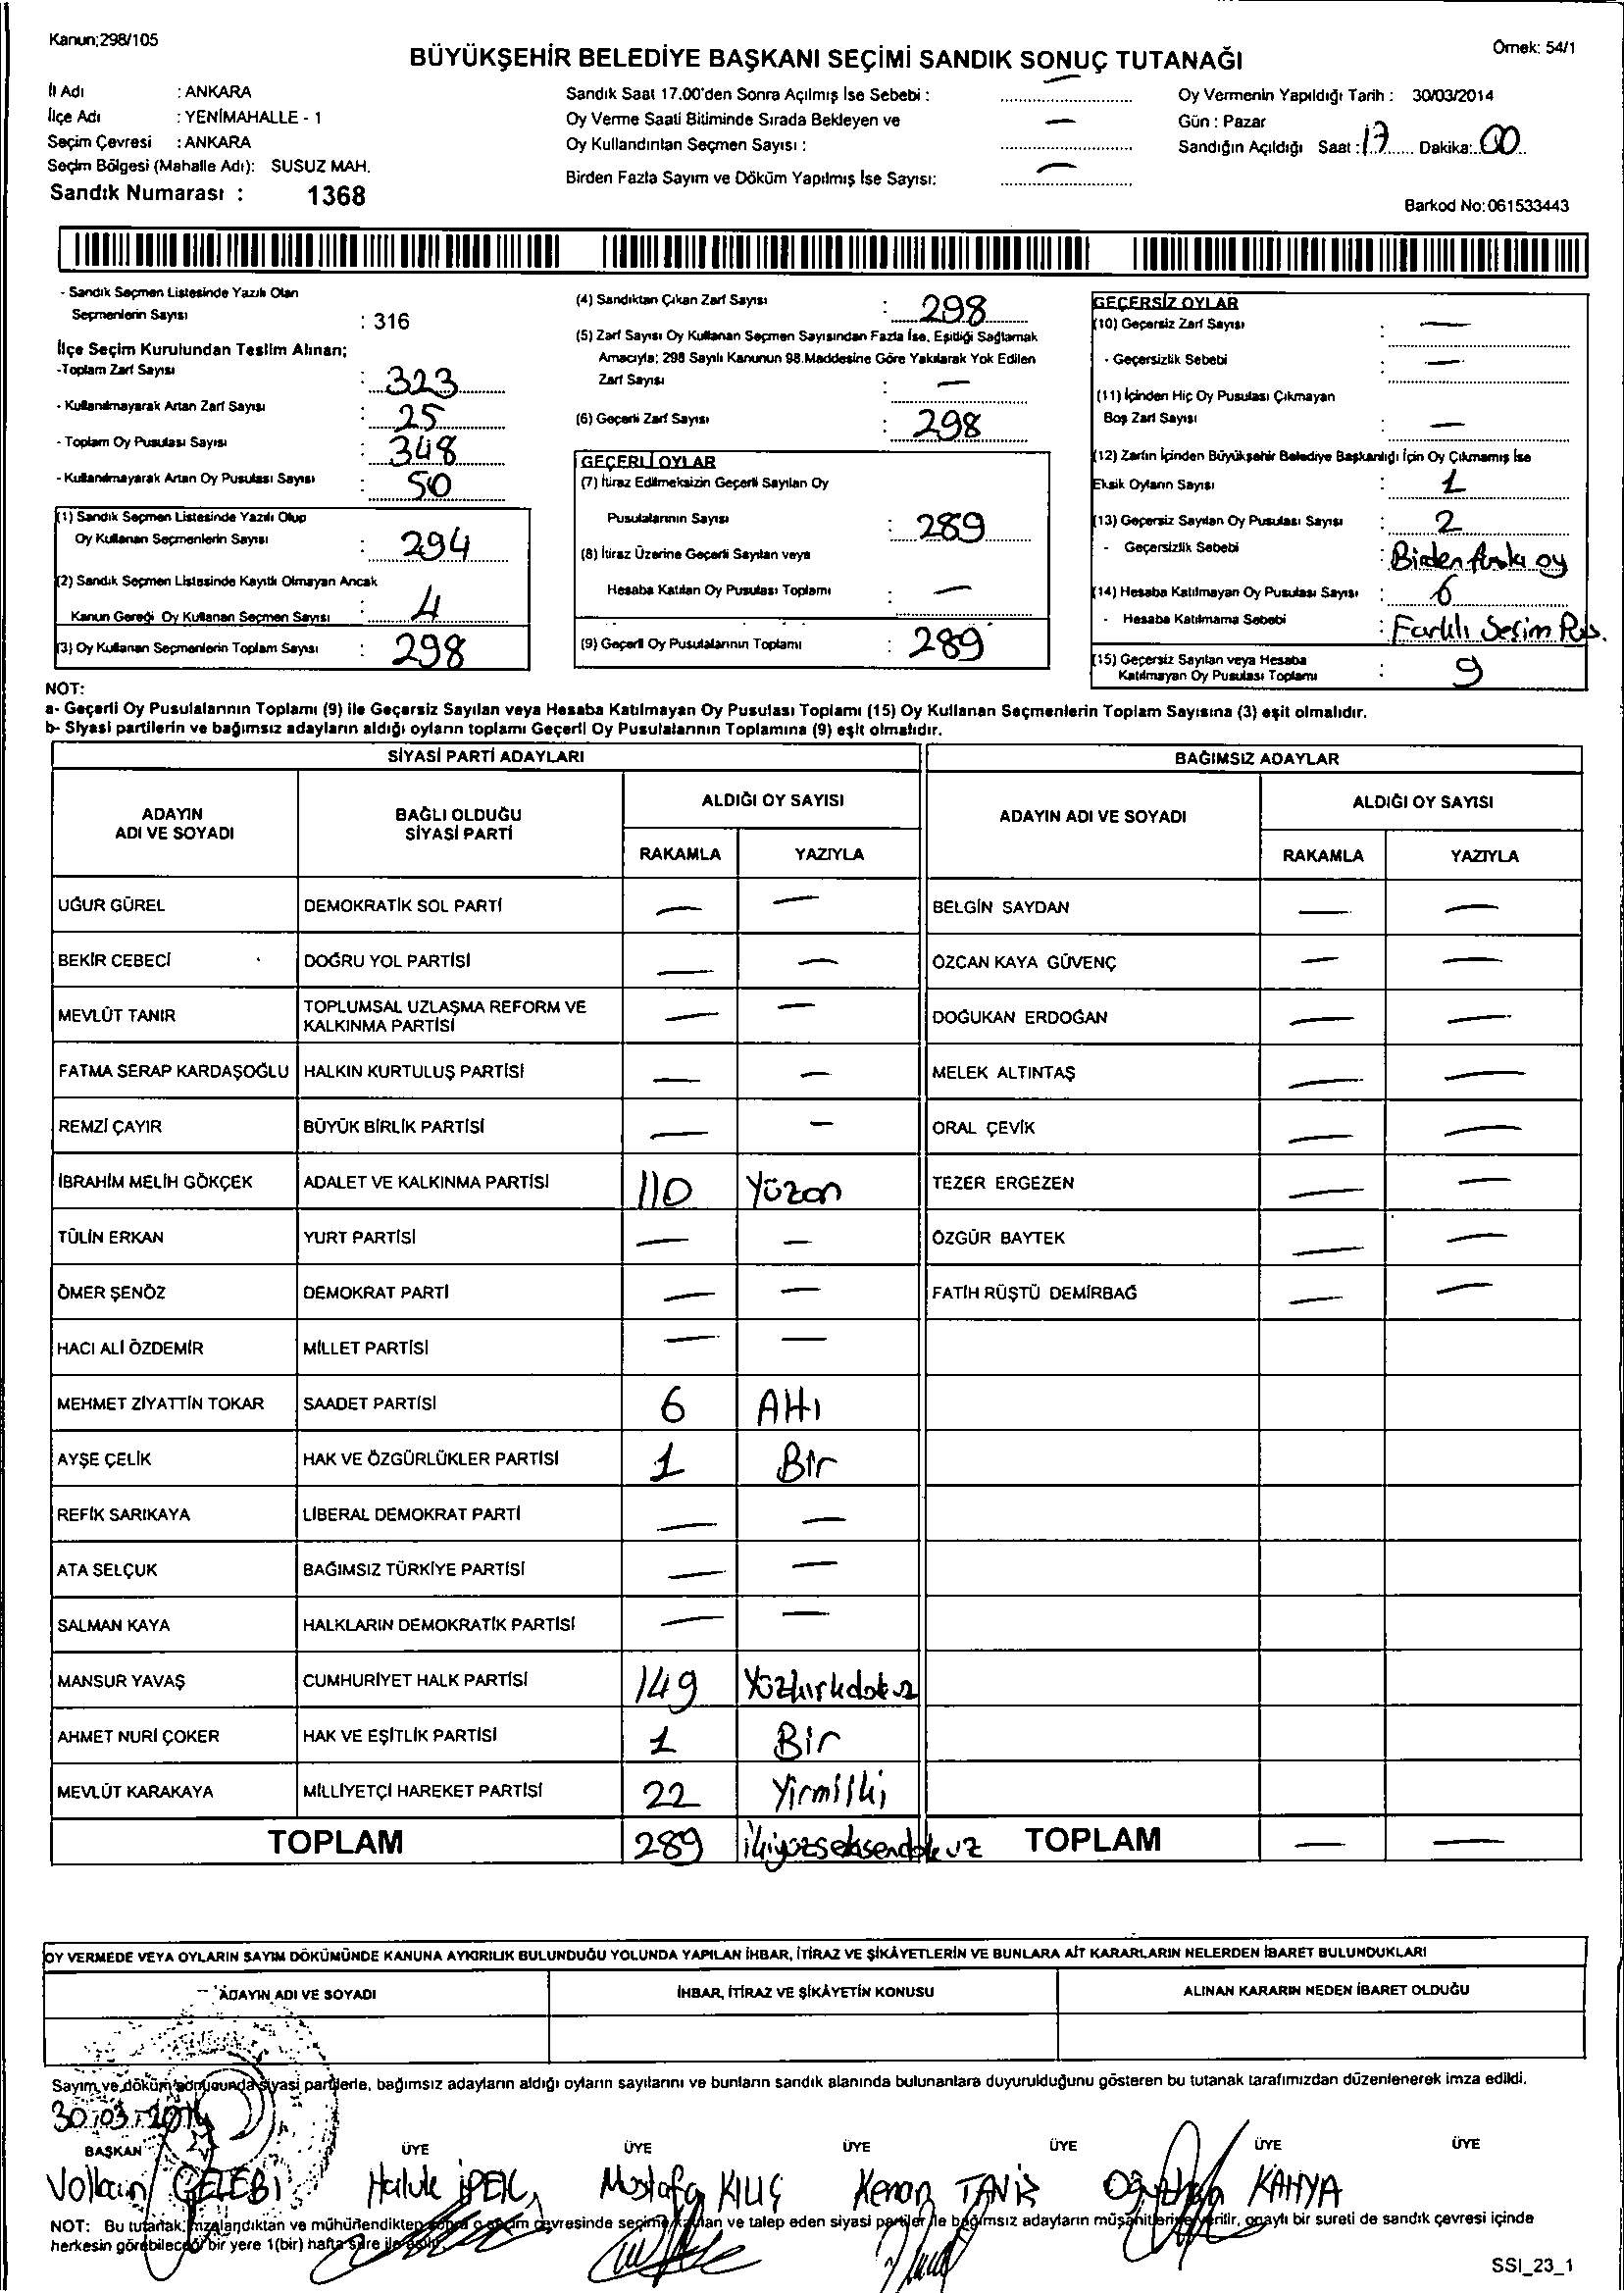 Kanun;298/105
Örnek: 54/1
BÜYÜKŞEHİR BELEDİYE BAŞKANI SEÇİMİ SANDIK SONUÇ TUTANAĞI
İl Adı : ANKARA
İlçe Adı : YENİMAHALLE - 1
Seçim Çevresi : ANKARA
Seçim Bölgesi (Mahalle Adı): SUSUZ MAH.
Sandık Numarası : 1368
Sandık Saat 17.00'den Sonra Açılmış İse Sebebi : —
Oy Verme Saati Bitiminde Sırada Bekleyen ve
Oy Kullandırılan Seçmen Sayısı : —
Birden Fazla Sayım ve Döküm Yapılmış İse Sayısı: —
Oy Vermenin Yapıldığı Tarih : 30/03/2014
Gün : Pazar
Sandığın Açıldığı Saat : 17 Dakika: 00
Barkod No: 061533443
- Sandık Seçmen Listesinde Yazılı Olan
Seçmenlerin Sayısı : 316
İlçe Seçim Kurulundan Teslim Alınan;
-Toplam Zarf Sayısı : 323
- Kullanılmayarak Artan Zarf Sayısı : 25
- Toplam Oy Pusulası Sayısı : 348
- Kullanılmayarak Artan Oy Pusulası Sayısı : 50
(1) Sandık Seçmen Listesinde Yazılı Olup
Oy Kullanan Seçmenlerin Sayısı : 294
(2) Sandık Seçmen Listesinde Kayıtlı Olmayan Ancak
Kanun Gereği Oy Kullanan Seçmen Sayısı : 4
(3) Oy Kullanan Seçmenlerin Toplam Sayısı : 298
(4) Sandıktan Çıkan Zarf Sayısı : 298
(5) Zarf Sayısı Oy Kullanan Seçmen Sayısından Fazla İse, Eşitliği Sağlamak
Amacıyla; 298 Sayılı Kanunun 98.Maddesine Göre Yakılarak Yok Edilen
Zarf Sayısı : —
(6) Geçerli Zarf Sayısı : 298
GEÇERLİ OYLAR
(7) İtiraz Edilmeksizin Geçerli Sayılan Oy
Pusulalarının Sayısı : 289
(8) İtiraz Üzerine Geçerli Sayılan veya
Hesaba Katılan Oy Pusulası Toplamı : —
(9) Geçerli Oy Pusulalarının Toplamı : 289
GEÇERSİZ OYLAR
(10) Geçersiz Zarf Sayısı : —
- Geçersizlik Sebebi : —
(11) İçinden Hiç Oy Pusulası Çıkmayan
Boş Zarf Sayısı : —
(12) Zarfın İçinden Büyükşehir Belediye Başkanlığı İçin Oy Çıkmamış İse
Eksik Oyların Sayısı : 1
(13) Geçersiz Sayılan Oy Pusulası Sayısı : 2
- Geçersizlik Sebebi : Birden fazla oy
(14) Hesaba Katılmayan Oy Pusulası Sayısı : 6
- Hesaba Katılmama Sebebi : Farklı Seçim Pus.
(15) Geçersiz Sayılan veya Hesaba
Katılmayan Oy Pusulası Toplamı : 9
NOT:
a- Geçerli Oy Pusulalarının Toplamı (9) ile Geçersiz Sayılan veya Hesaba Katılmayan Oy Pusulası Toplamı (15) Oy Kullanan Seçmenlerin Toplam Sayısına (3) eşit olmalıdır.
b- Siyasi partilerin ve bağımsız adayların aldığı oyların toplamı Geçerli Oy Pusulalarının Toplamına (9) eşit olmalıdır.
SİYASİ PARTİ ADAYLARI BAĞIMSIZ ADAYLAR
ADAYIN ADI VE SOYADI BAĞLI OLDUĞU SİYASİ PARTİ ALDIĞI OY SAYISI ADAYIN ADI VE SOYADI ALDIĞI OY SAYISI
RAKAMLA YAZIYLA RAKAMLA YAZIYLA
UĞUR GÜREL DEMOKRATİK SOL PARTİ — — BELGİN SAYDAN — —
BEKİR CEBECİ DOĞRU YOL PARTİSİ — — ÖZCAN KAYA GÜVENÇ — —
MEVLÜT TANIR TOPLUMSAL UZLAŞMA REFORM VE KALKINMA PARTİSİ — — DOĞUKAN ERDOĞAN — —
FATMA SERAP KARDAŞOĞLU HALKIN KURTULUŞ PARTİSİ — — MELEK ALTINTAŞ — —
REMZİ ÇAYIR BÜYÜK BİRLİK PARTİSİ — — ORAL ÇEVİK — —
İBRAHİM MELİH GÖKÇEK ADALET VE KALKINMA PARTİSİ 110 Yüzon TEZER ERGEZEN — —
TÜLİN ERKAN YURT PARTİSİ — — ÖZGÜR BAYTEK — —
ÖMER ŞENÖZ DEMOKRAT PARTİ — — FATİH RÜŞTÜ DEMİRBAĞ — —
HACI ALİ ÖZDEMİR MİLLET PARTİSİ — —
MEHMET ZİYATTİN TOKAR SAADET PARTİSİ 6 Altı
AYŞE ÇELİK HAK VE ÖZGÜRLÜKLER PARTİSİ 1 Bir
REFİK SARIKAYA LİBERAL DEMOKRAT PARTİ — —
ATA SELÇUK BAĞIMSIZ TÜRKİYE PARTİSİ — —
SALMAN KAYA HALKLARIN DEMOKRATİK PARTİSİ — —
MANSUR YAVAŞ CUMHURİYET HALK PARTİSİ 149 Yüzkırkdokuz
AHMET NURİ ÇOKER HAK VE EŞİTLİK PARTİSİ 1 Bir
MEVLÜT KARAKAYA MİLLİYETÇİ HAREKET PARTİSİ 22 Yirmiiki
TOPLAM 289 ikiyüzseksendokuz TOPLAM — —
OY VERMEDE VEYA OYLARIN SAYIM DÖKÜMÜNDE KANUNA AYKIRILIK BULUNDUĞU YOLUNDA YAPILAN İHBAR, İTİRAZ VE ŞİKÂYETLERİN VE BUNLARA AİT KARARLARIN NELERDEN İBARET BULUNDUKLARI
ADAYIN ADI VE SOYADI İHBAR, İTİRAZ VE ŞİKÂYETİN KONUSU ALINAN KARARIN NEDEN İBARET OLDUĞU
Sayım ve döküm sonucunda siyasi partilerle, bağımsız adayların aldığı oyların sayılarını ve bunların sandık alanında bulunanlara duyurulduğunu gösteren bu tutanak tarafımızdan düzenlenerek imza edildi.
30.03.2014
BAŞKAN ÜYE ÜYE ÜYE ÜYE ÜYE ÜYE
Volkan ÇELEBİ Haluk İPEK Mustafa KILIÇ Kenan TANIR Oğuzhan KAHYA
NOT: Bu tutanak, imzalandıktan ve mühürlendikten sonra o seçim çevresinde seçime katılan ve talep eden siyasi partiler ile bağımsız adayların müşahitlerine verilir, onaylı bir sureti de sandık çevresi içinde
herkesin görebileceği bir yere 1(bir) hafta süre ile asılır.
SSI_23_1